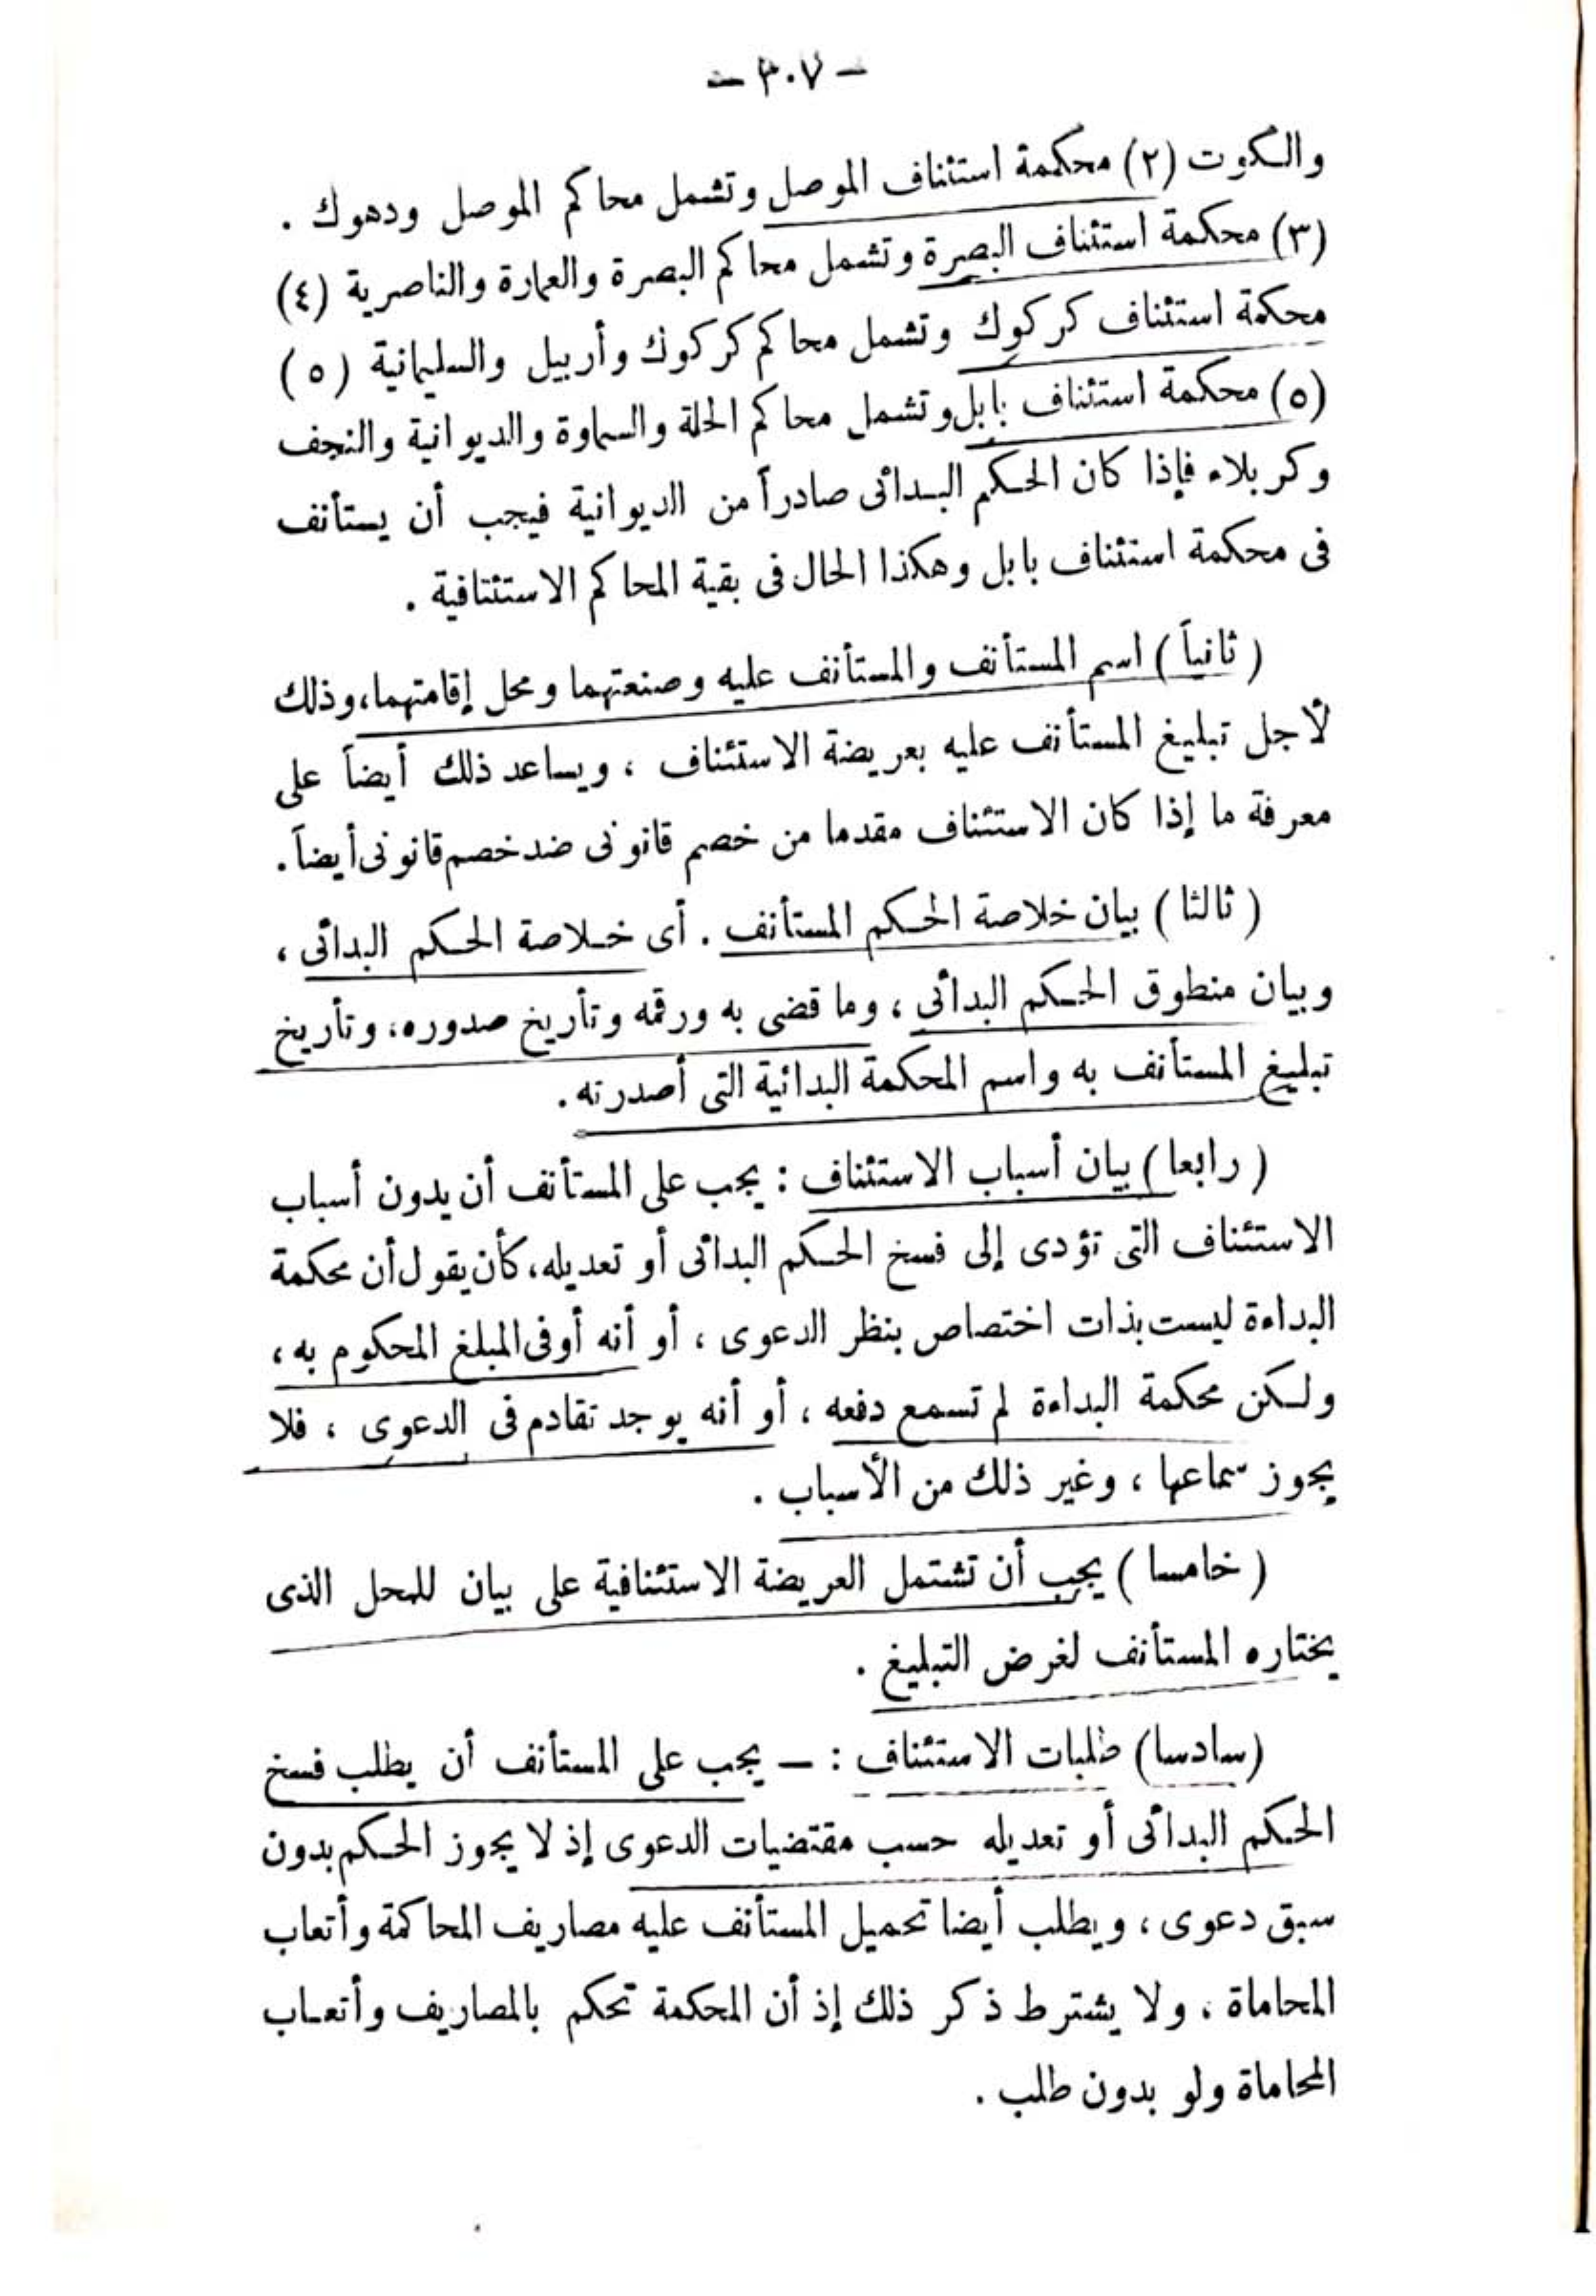 — ٣٠٧ —
والكوت (٢) محكمة استئناف الموصل وتشمل محاكم الموصل ودهوك .
(٣) محكمة استئناف البصرة وتشمل محاكم البصرة والعمارة والناصرية (٤)
محكمة استئناف كركوك وتشمل محاكم كركوك وأربيل والسليمانية (٥)
(٥) محكمة استئناف بابل وتشمل محاكم الحلة والسماوة والديوانية والنجف
وكربلاء فإذا كان الحكم البدائى صادراً من الديوانية فيجب أن يستأنف
فى محكمة استئناف بابل وهكذا الحال فى بقية المحاكم الاستئنافية .
( ثانياً ) اسم المستأنف والمستأنف عليه وصنعتهما ومحل إقامتهما، وذلك
لأجل تبليغ المستأنف عليه بعريضة الاستئناف ، ويساعد ذلك أيضاً على
معرفة ما إذا كان الاستئناف مقدما من خصم قانونى ضد خصم قانونى أيضاً.
( ثالثا ) بيان خلاصة الحكم المستأنف . أى خلاصة الحكم البدائى ،
وبيان منطوق الحكم البدائى ، وما قضى به ورقمه وتأريخ صدوره، وتأريخ
تبليغ المستأنف به واسم المحكمة البدائية التى أصدرته.
( رابعا ) بيان أسباب الاستئناف : يجب على المستأنف أن يدون أسباب
الاستئناف التى تؤدى إلى فسخ الحكم البدائى أو تعديله، كأن يقول أن محكمة
البداءة ليست بذات اختصاص بنظر الدعوى ، أو أنه أوفى المبلغ المحكوم به ،
ولكن محكمة البداءة لم تسمع دفعه ، أو أنه يوجد تقادم فى الدعوى ، فلا
يجوز سماعها ، وغير ذلك من الأسباب .
( خامسا ) يجب أن تشتمل العريضة الاستئنافية على بيان للمحل الذى
يختاره المستأنف لغرض التبليغ .
(سادسا) طلبات الاستئناف : — يجب على المستأنف أن يطلب فسخ
الحكم البدائى أو تعديله حسب مقتضيات الدعوى إذ لا يجوز الحكم بدون
سبق دعوى ، ويطلب أيضا تحميل المستأنف عليه مصاريف المحاكمة وأتعاب
المحاماة ، ولا يشترط ذكر ذلك إذ أن المحكمة تحكم بالمصاريف وأتعاب
المحاماة ولو بدون طلب .